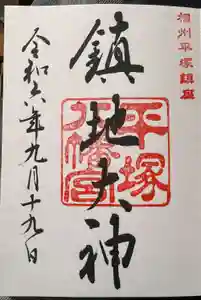 相州平塚鎮座
鎮地大神
平塚八幡宮
令和六年九月十九日